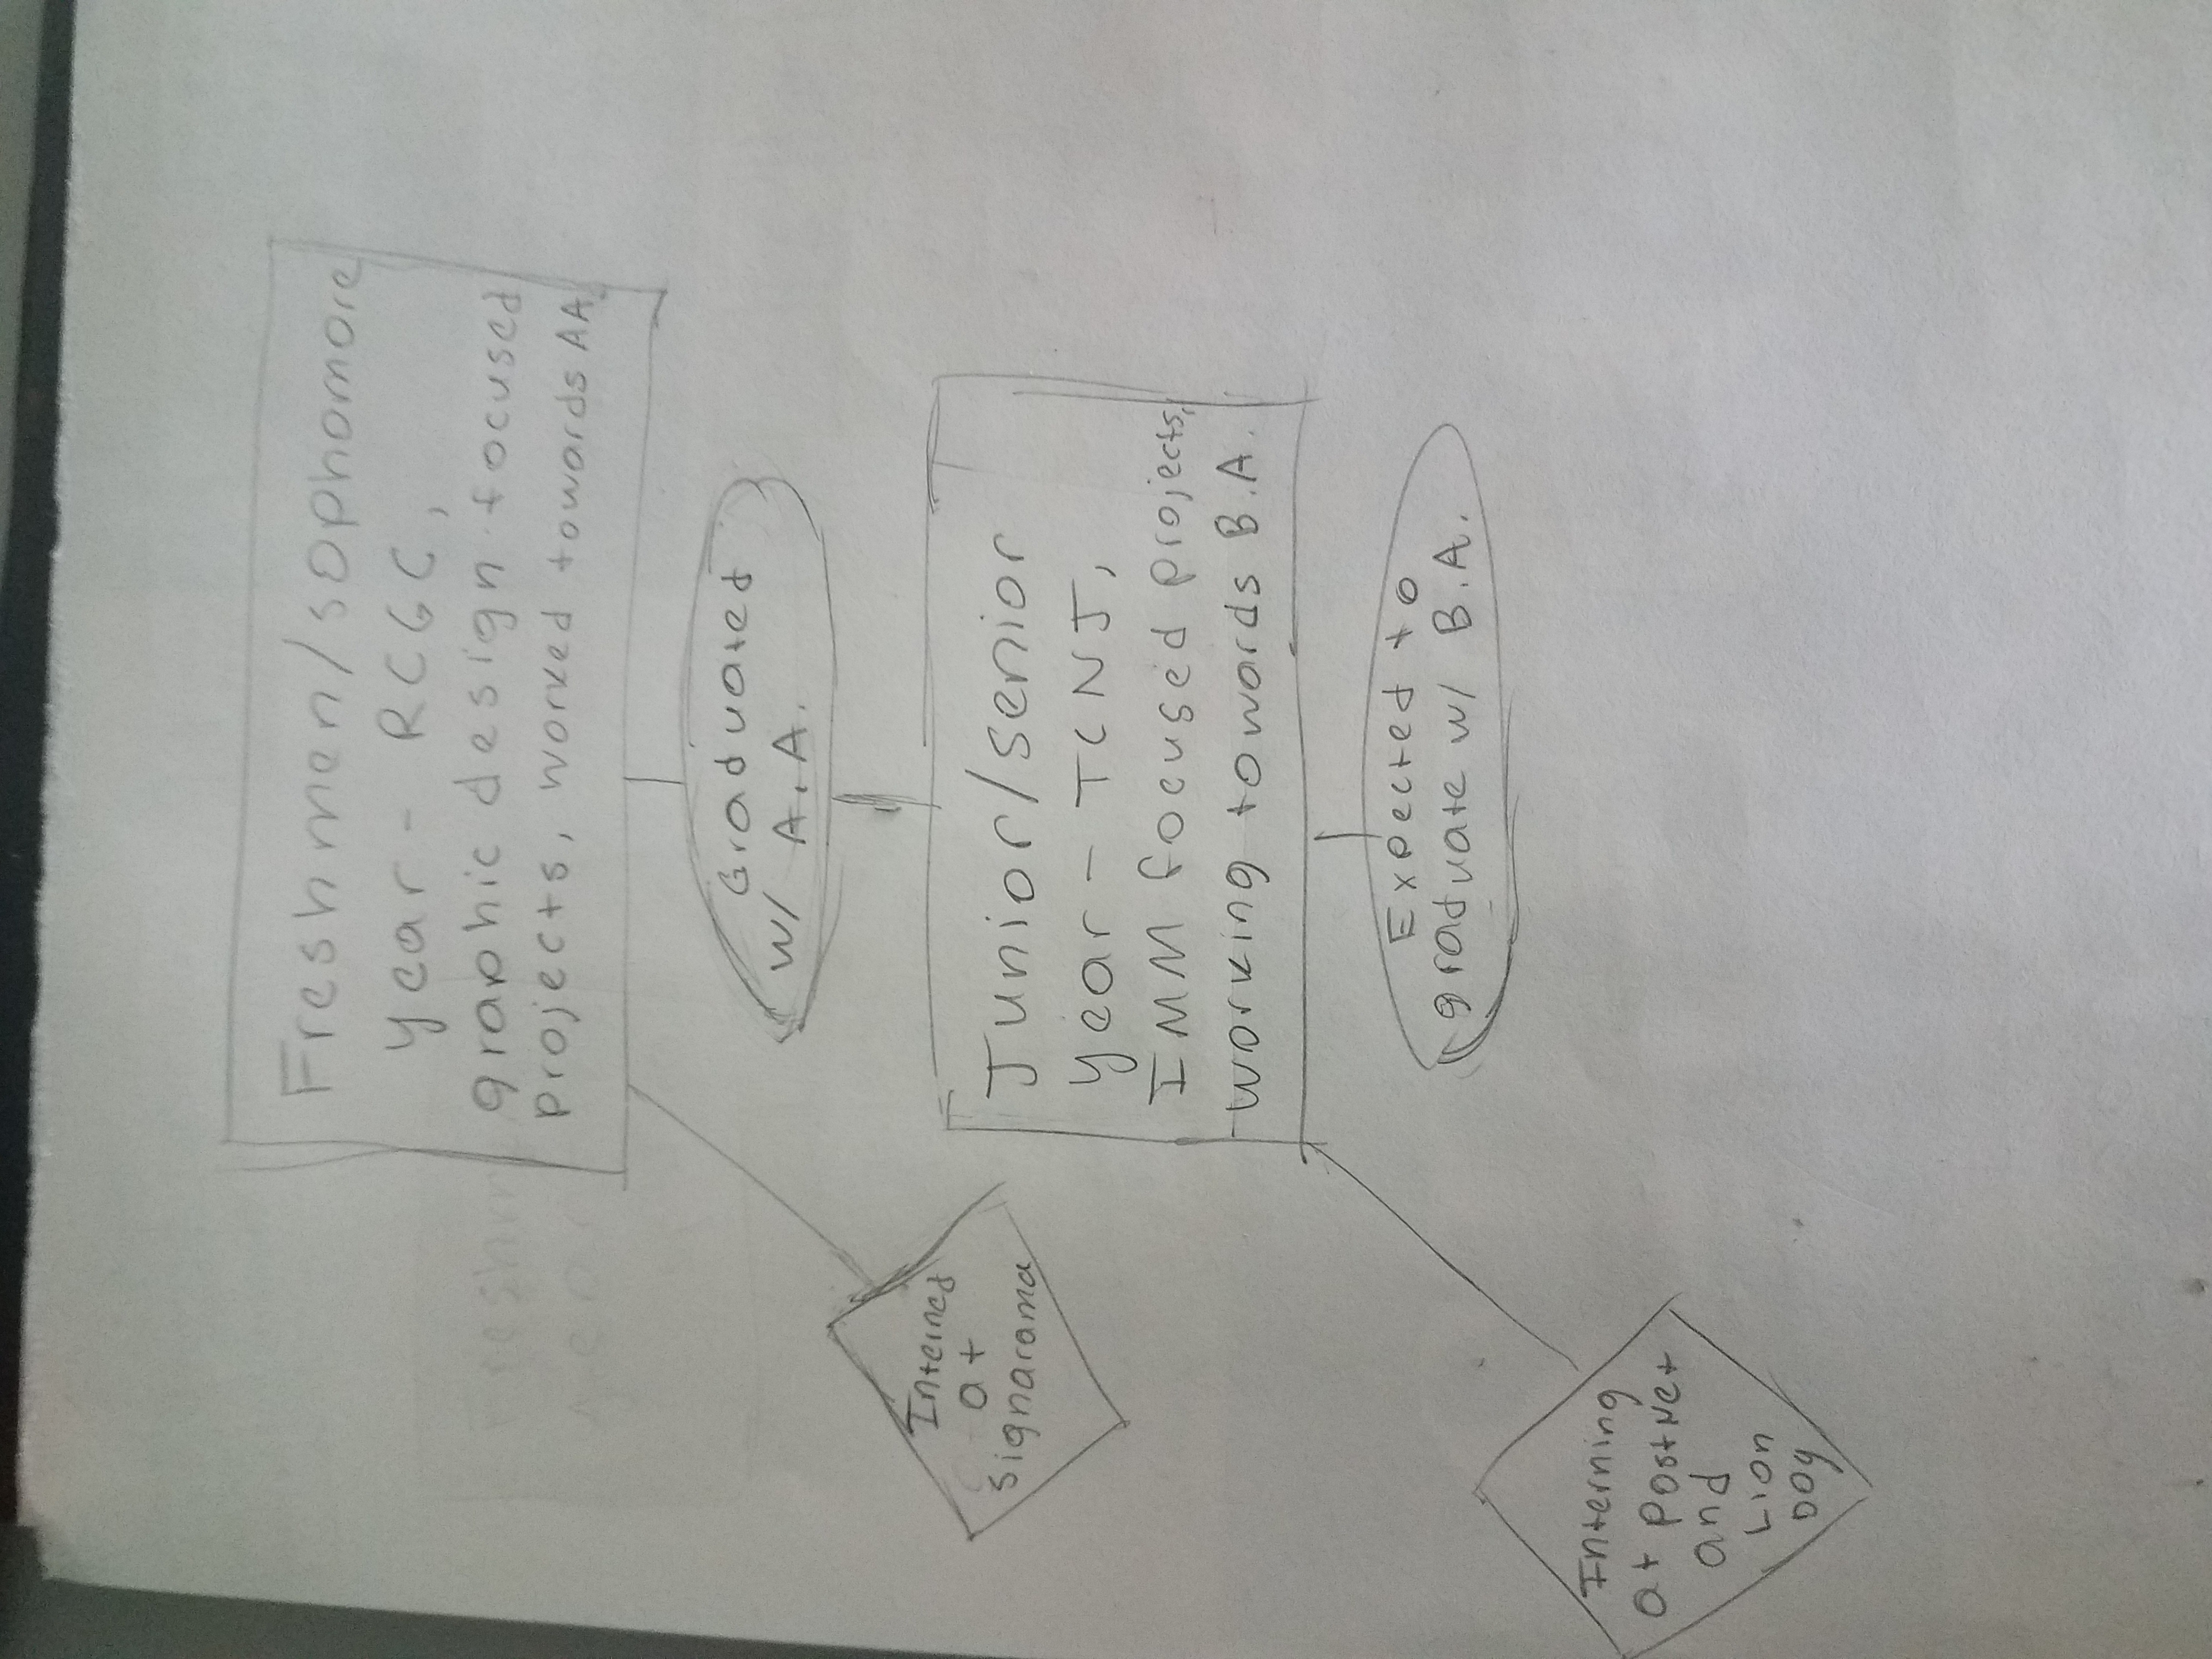 Freshmen/sophomore
year - RCGC,
graphic design focused
projects, worked towards AA.
Graduated
w/ A.A.
Interned
at
Signarama
Junior/senior
year - TCNJ,
IMM focused projects,
working towards B.A.
Expected to
graduate w/ B.A.
Interning
at PostNet
and
Lion